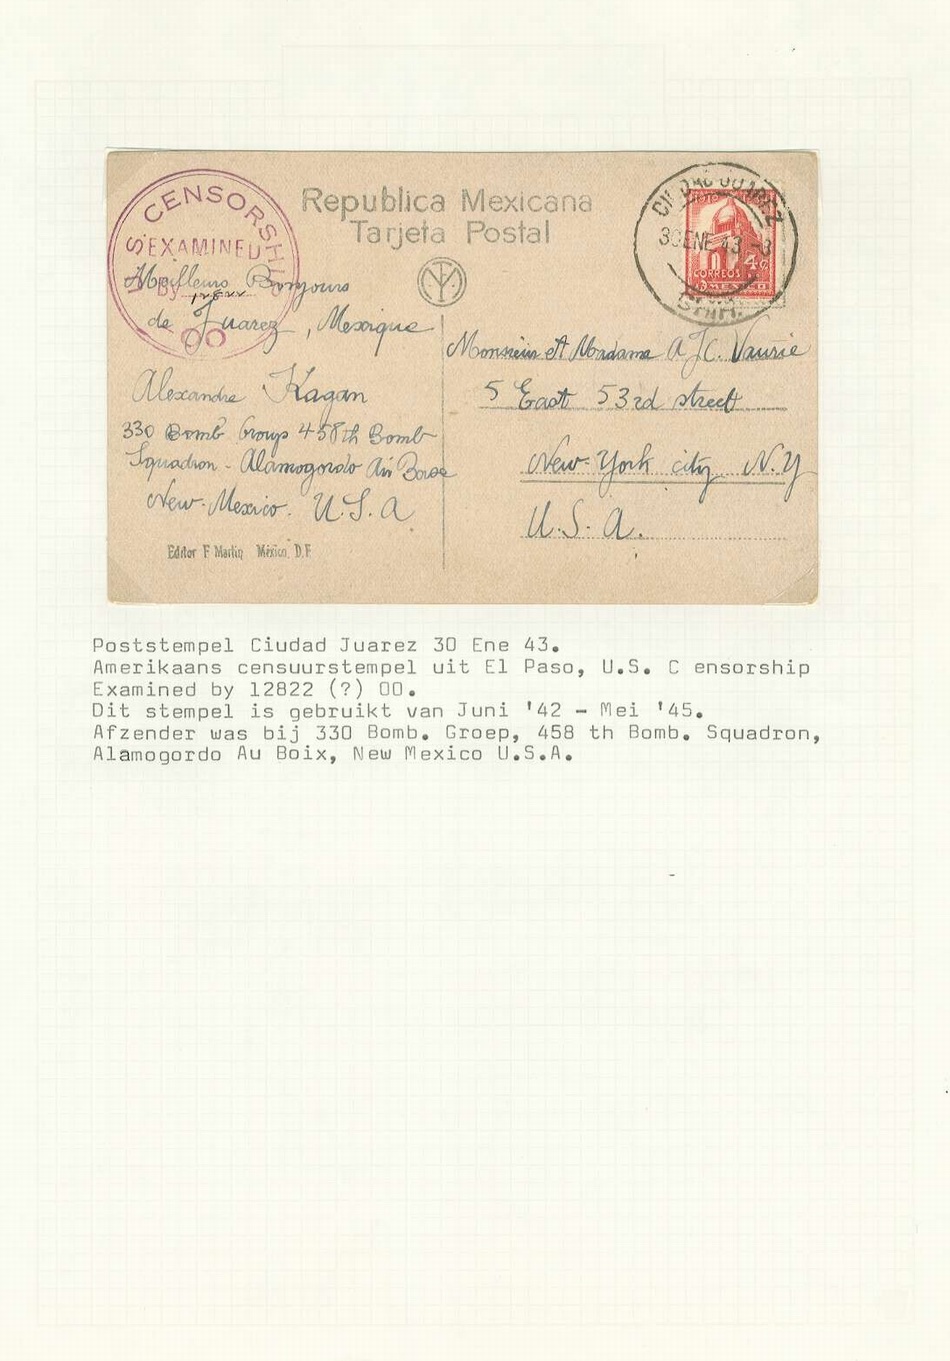 U.S. CENSORSHIP
EXAMINED
By
00
Republica Mexicana
Tarjeta Postal
CIUDAD JUAREZ
30 ENE 43 -8
CHIH.
4¢
CORREOS
MEXICO
Meilleurs Bonjours
de Juarez, Mexique
Alexandre Kagan
330 Bomb Group 458th Bomb
Squadron - Alamogordo Air Base
New-Mexico. U.S.A
Editor F Martin México, D.F.
Monsieur et Madame A.J.C. Vaurie
5 East 53rd street
New-York city N.Y
U.S.A.
Poststempel Ciudad Juarez 30 Ene 43.
Amerikaans censuurstempel uit El Paso, U.S. C ensorship
Examined by 12822 (?) 00.
Dit stempel is gebruikt van Juni '42 - Mei '45.
Afzender was bij 330 Bomb. Groep, 458 th Bomb. Squadron,
Alamogordo Au Boix, New Mexico U.S.A.